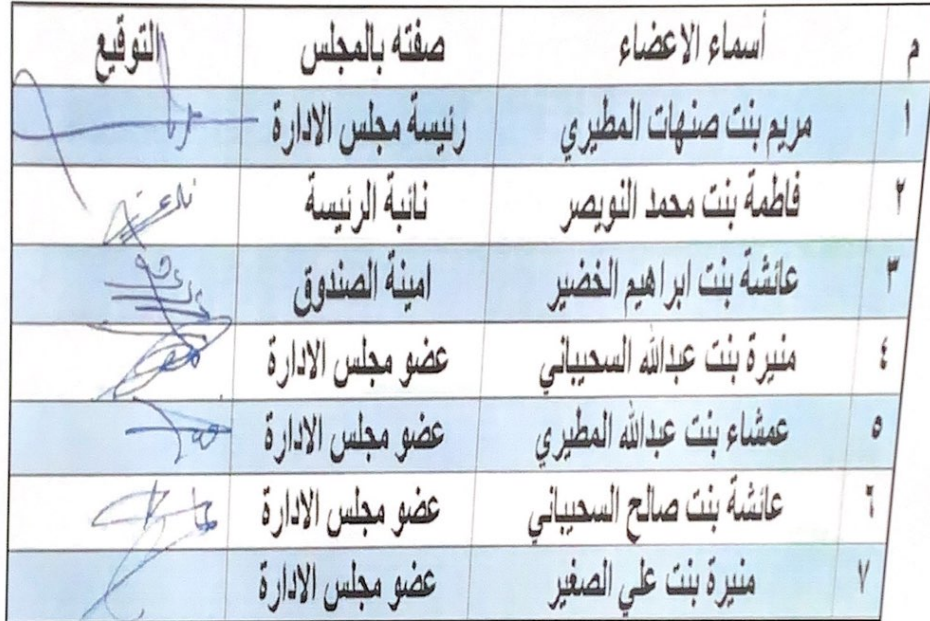 م أسماء الاعضاء صفته بالمجلس التوقيع
١ مريم بنت صنهات المطيري رئيسة مجلس الادارة
٢ فاطمة بنت محمد النويصر نائبة الرئيسة
٣ عائشة بنت ابراهيم الخضير امينة الصندوق
٤ منيرة بنت عبدالله السحيباني عضو مجلس الادارة
٥ عمشاء بنت عبدالله المطيري عضو مجلس الادارة
٦ عائشة بنت صالح السحيباني عضو مجلس الادارة
٧ منيرة بنت علي الصغير عضو مجلس الادارة